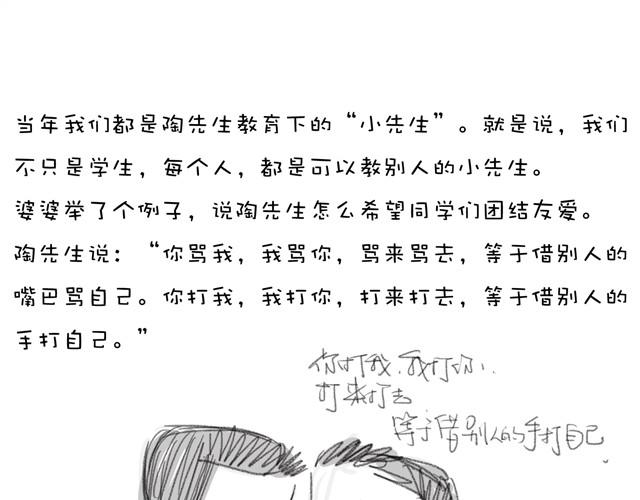 当年我们都是陶先生教育下的“小先生”。就是说，我们
不只是学生，每个人，都是可以教别人的小先生。
婆婆举了个例子，说陶先生怎么希望同学们团结友爱。
陶先生说：“你骂我，我骂你，骂来骂去，等于借别人的
嘴巴骂自己。你打我，我打你，打来打去，等于借别人的
手打自己。”
你打我.我打你..
打来打去
等于借别人的手打自己.